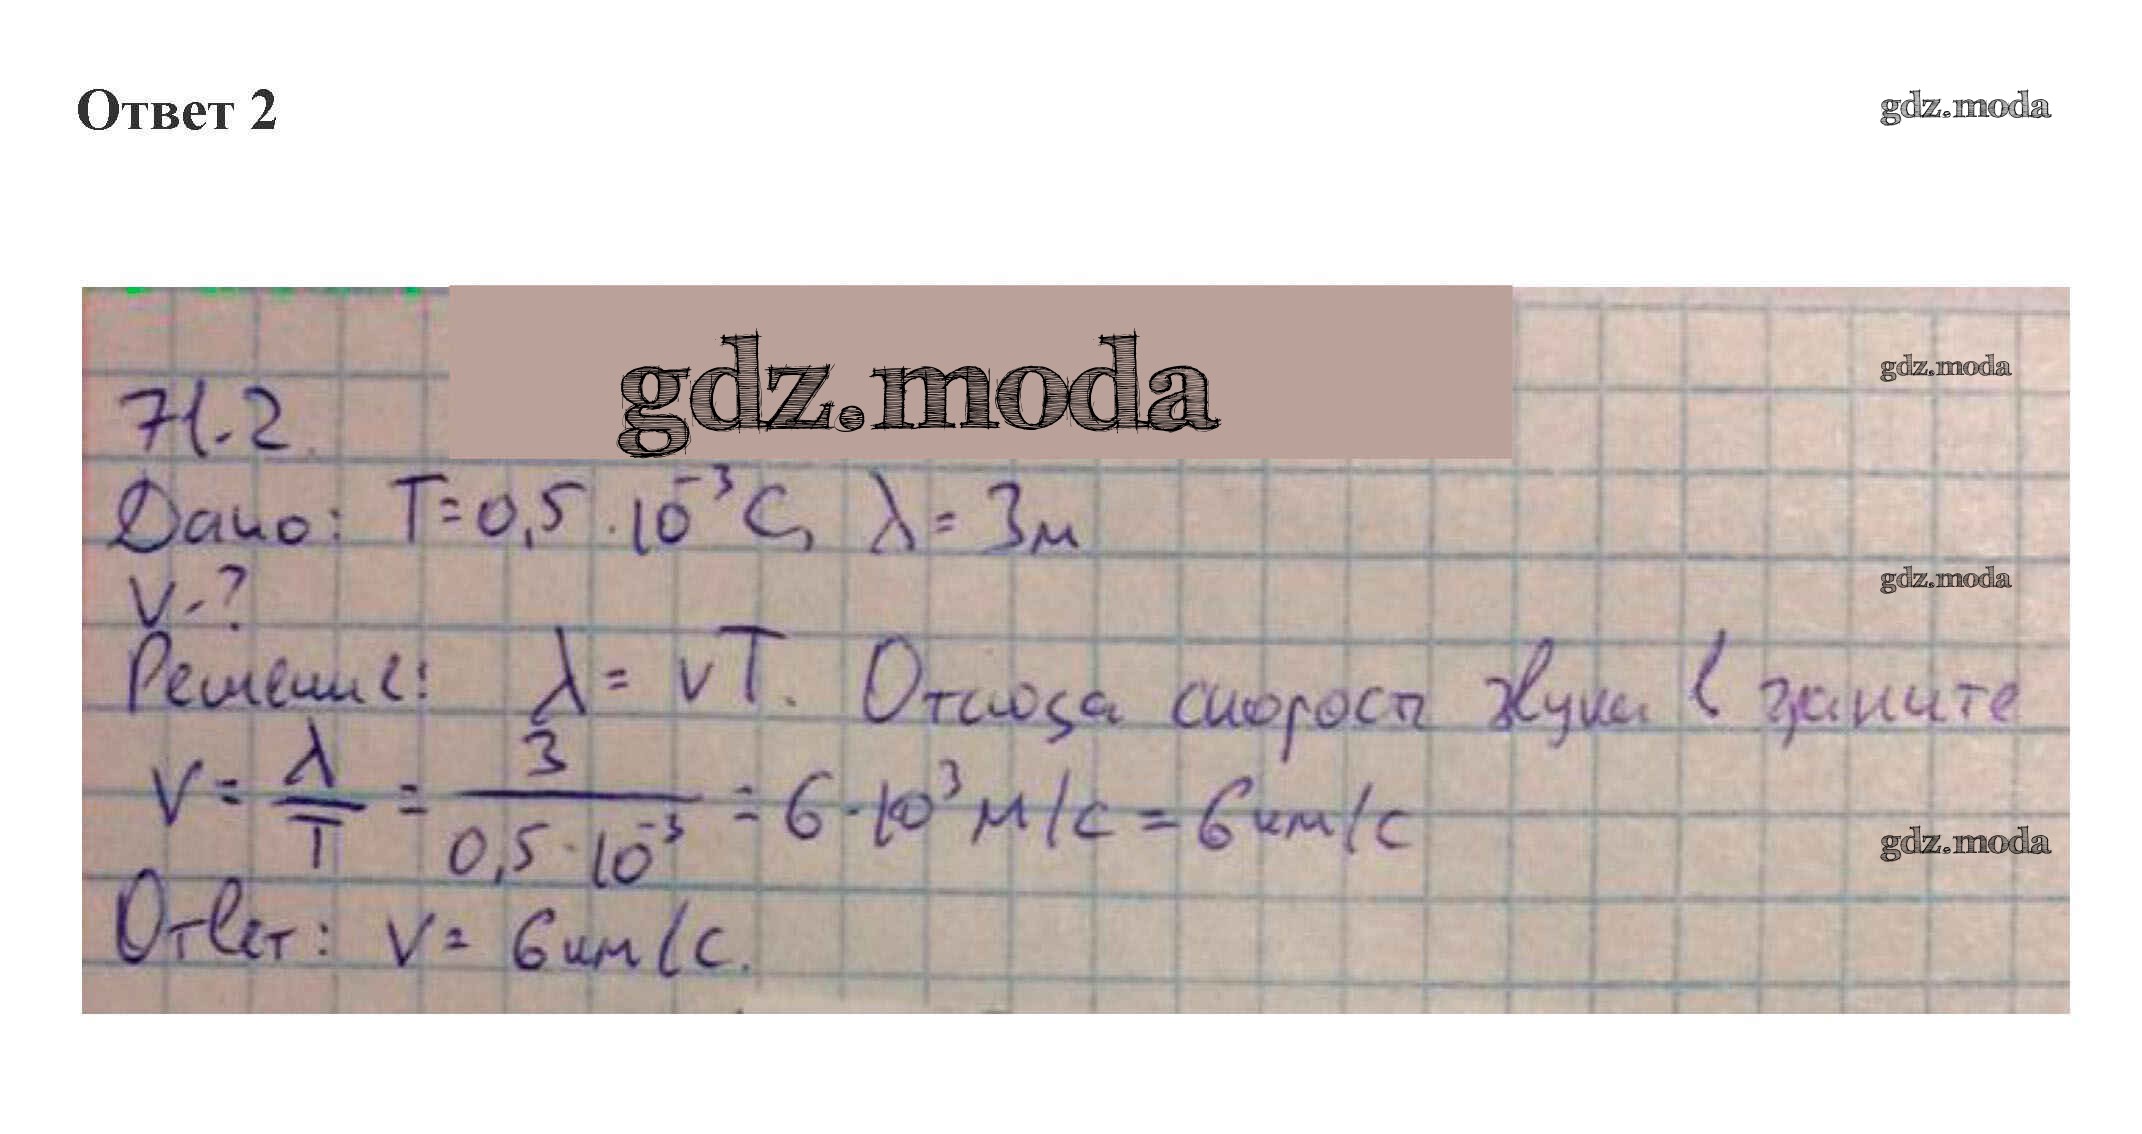 Ответ 2
gdz.moda
gdz.moda
gdz.moda
71.2.
Дано: T=0,5·10⁻³ С, λ = 3м
V-?
gdz.moda
Решение: λ = vT. Отсюда скорость звука в граните
V = λ/T = 3/(0,5·10⁻³) = 6·10³ м/с = 6 км/с
gdz.moda
Ответ: V = 6 км/с.